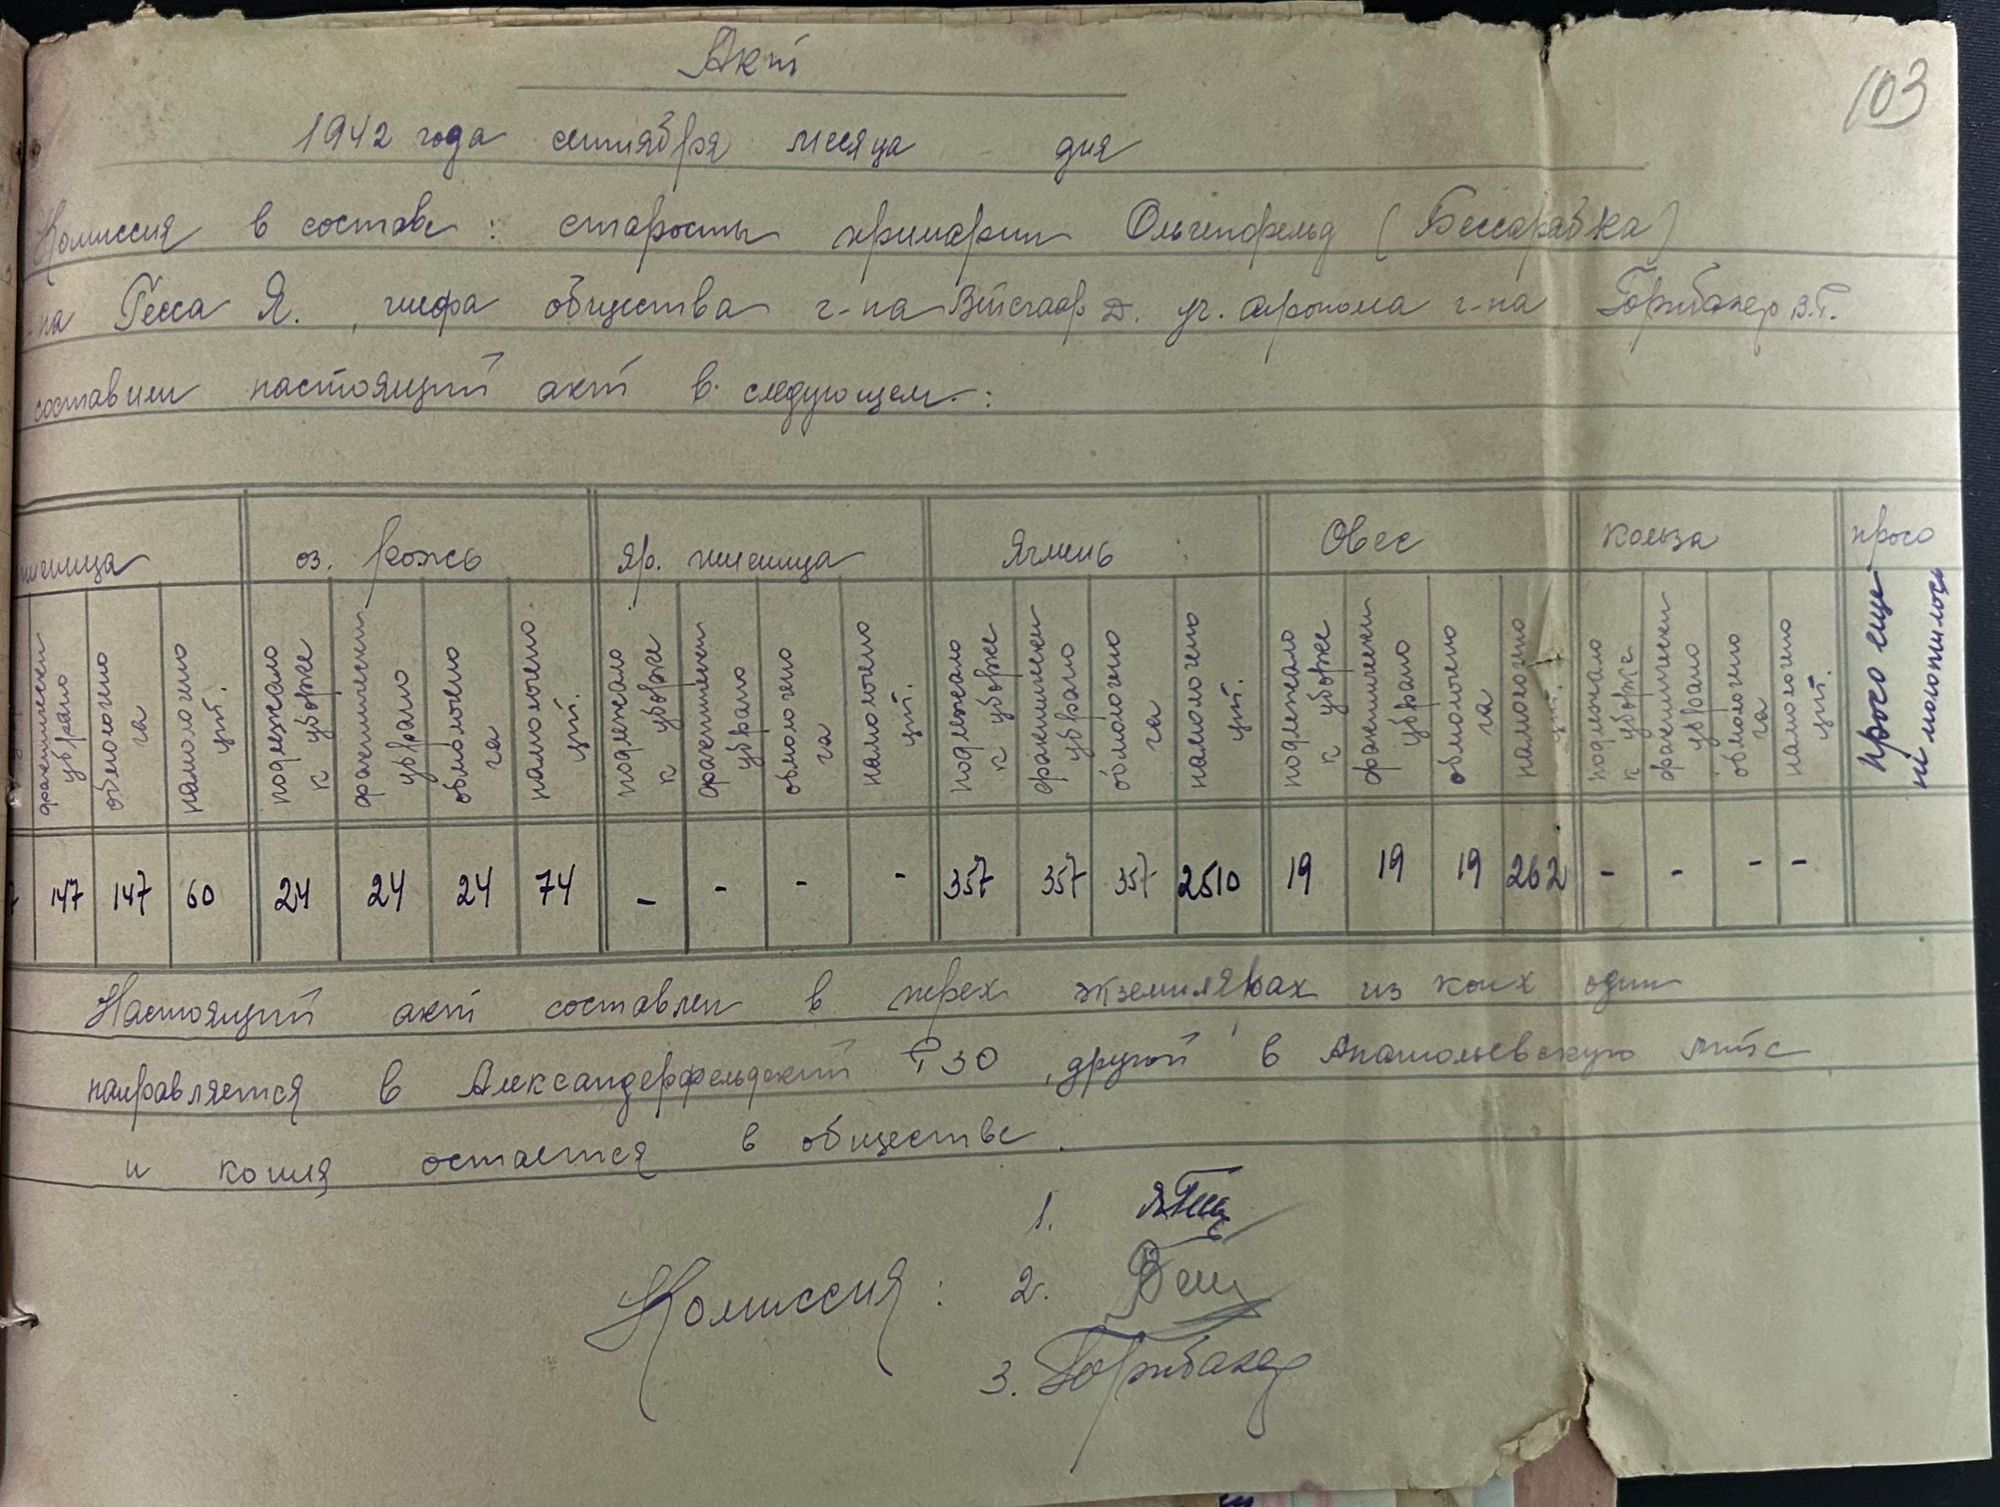 103
Акт
1942 года сентября месяца дня
Комиссия в составе: старосты примарии Ольгенфельд (Бессарабка)
-на Гесса Я., шефа общества г-на Д. уч. агронома г-на В.Г.
составили настоящий акт в следующем:
пшеница оз. рожь яр. пшеница Ячмень Овес кольза просо
фактически убрано
обмолочено га
намолочено цт.
подлежало к уборке
фактически убрано
обмолочено га
намолочено цт.
подлежало к уборке
фактически убрано
обмолочено га
намолочено цт.
подлежало к уборке
фактически убрано
обмолочено га
намолочено цт.
подлежало к уборке
фактически убрано
обмолочено га
намолочено цт.
подлежало к уборке
фактически убрано
обмолочено га
намолочено цт.
просо еще не молотилось
147 147 60 24 24 24 74 - - - - 357 357 357 2510 19 19 19 262 - - - -
Настоящий акт составлен в трех экземплярах из коих один
направляется в Александерфельдский РЗО, другой в Анатольевскую МТС
и копия остается в обществе.
1.
Комиссия: 2.
3.